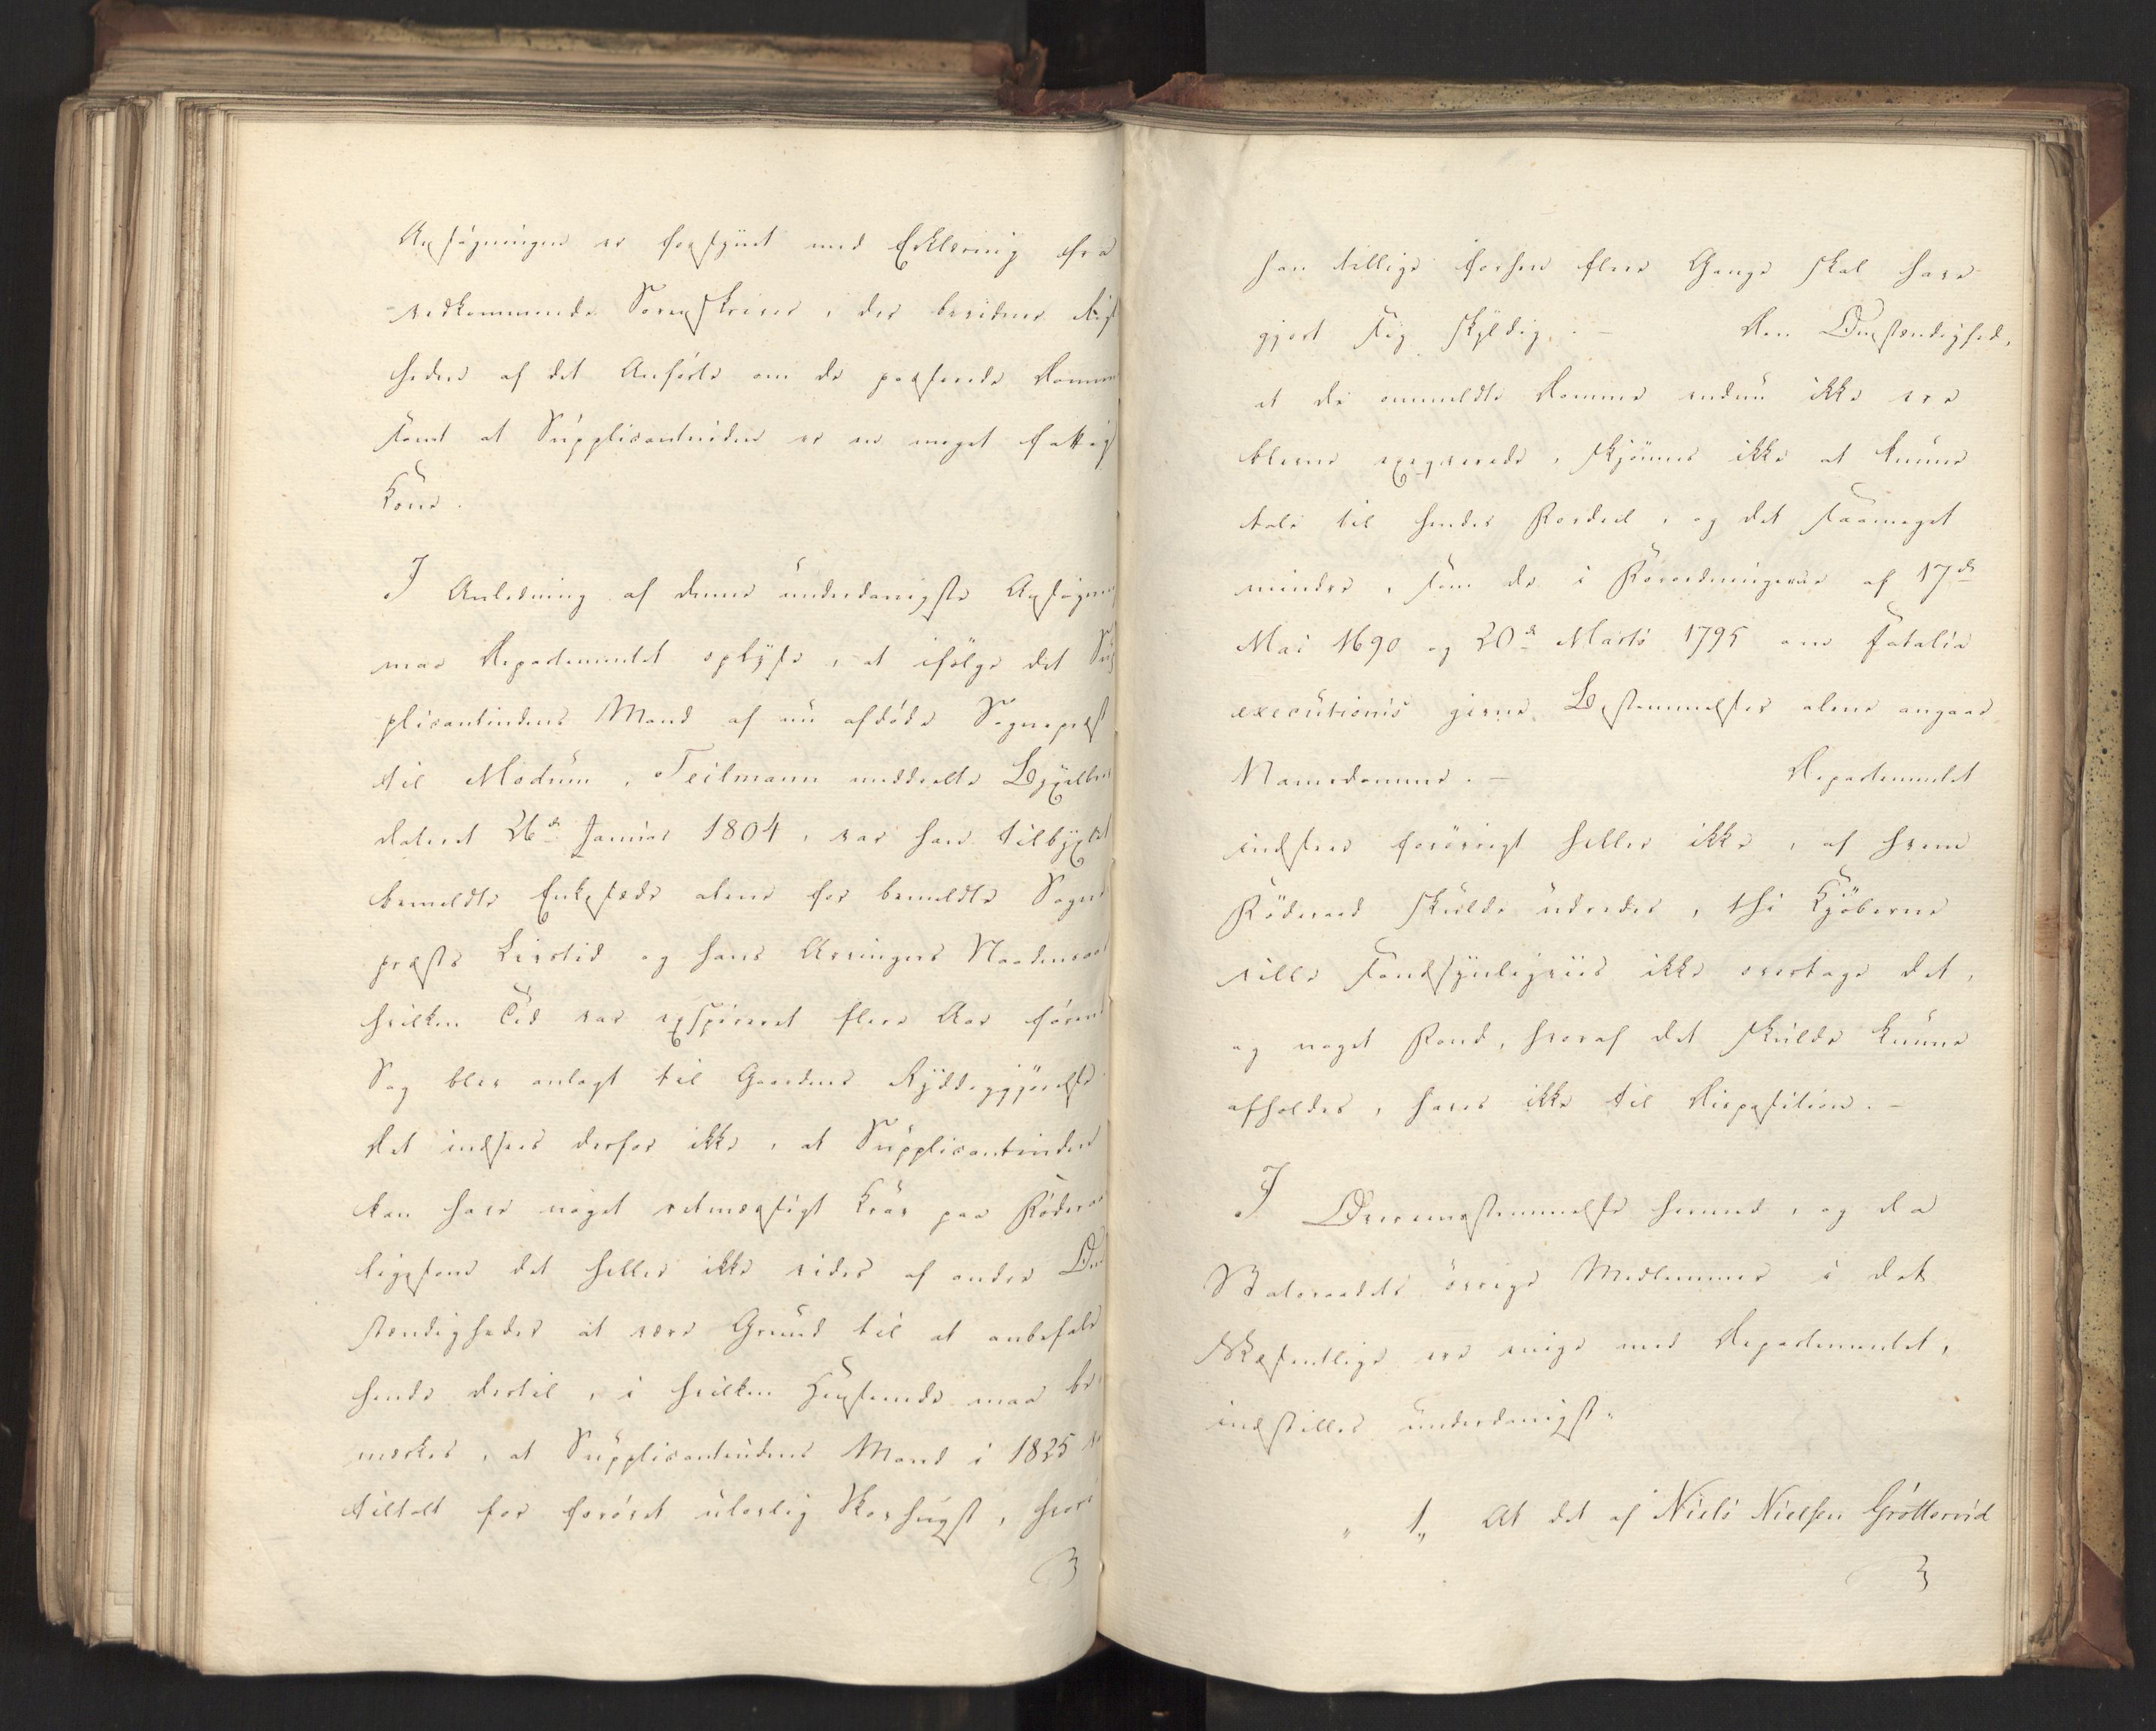 Ansøgningen er forsynet med Erklæring fra
vedkommende Sorenskriver, der bevidner Rigtig
heden af det Anførte om de passerede Domme
samt at Supplicantinden er en meget fattig
Kone.
I Anledning af denne underdanigste Ansøgning
maa Departementet oplyse, at ifølge det Sup
plicantindens Mand af nu afdøde Sognepræst
til Modum, Teilmann meddeelte Bygselbrev
dateret 26de Januar 1804, var ham tilbyxlet
bemeldte Enkesæde alene for bemeldte Sogne
præsts Livstid og hans Arvingers Naadensaar
hvilken Tid var exspireret flere Aar førend
Sag blev anlagt til Gaardens Ryddiggjørelse.
Det indsees derfor ikke, at Supplicantinden
kan have noget retmæssigt Krav paa Føderaad
ligesom det heller ikke vides af andre Om
stændigheder at være Grund til at anbefale
hende dertil, i hvilken Henseende maa be
mærkes, at Supplicantindens Mand i 1825 er
tiltalt for forøvet ulovlig Skovhugst, hvori
han tillige forhen flere Gange skal have
gjort sig skyldig. — Den Omstændighed,
at de ommeldte Domme endnu ikke ere
blevne exeqverede, skjønnes ikke at kunne
tale til hendes Fordeel, og det saameget
mindre, som de i Forordningerne af 17de
Mai 1690 og 20de Marts 1795 om Fatalia
executionis givne Bestemmelser alene angaae
Navnedomme. — Departementet
indseer forøvrigt heller ikke, af hvem
Føderaad skulde udredes, thi Kjøberne
ville sandsynligviis ikke overtage det,
og noget Fond, hvoraf det skulde kunne
afholdes, haves ikke til Disposition. —
I Overeensstemmelse hermed, og da
Statsraadets øvrige Medlemmer i det
Væsentlige ere enige med Departementet,
indstilles underdanigst:
" 1, At det af Niels Nielsen Grøttervid